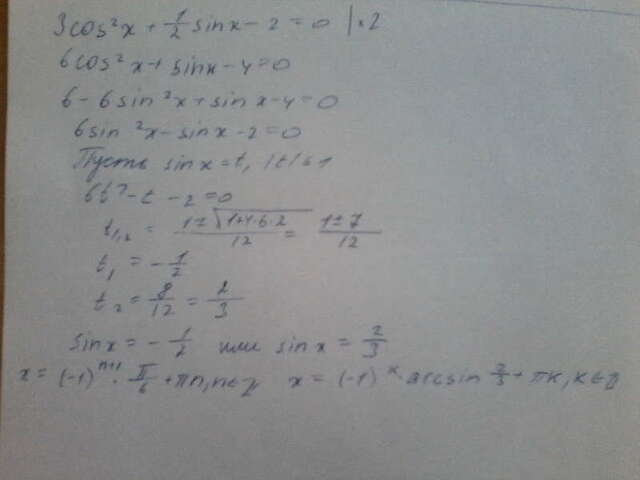 3cos²x + 1/2 sinx - 2 = 0 | ×2
6cos²x + sinx - 4 = 0
6 - 6sin²x + sinx - 4 = 0
6sin²x - sinx - 2 = 0
Пусть sinx = t, |t| ≤ 1
6t² - t - 2 = 0
t₁,₂ = (1 ± √(1+4·6·2))/12 = (1 ± 7)/12
t₁ = -1/2
t₂ = 8/12 = 2/3
sinx = -1/2 или sinx = 2/3
x = (-1)ⁿ⁺¹ · π/6 + πn, n∈Z x = (-1)ᵏ · arcsin 2/3 + πk, k∈Z